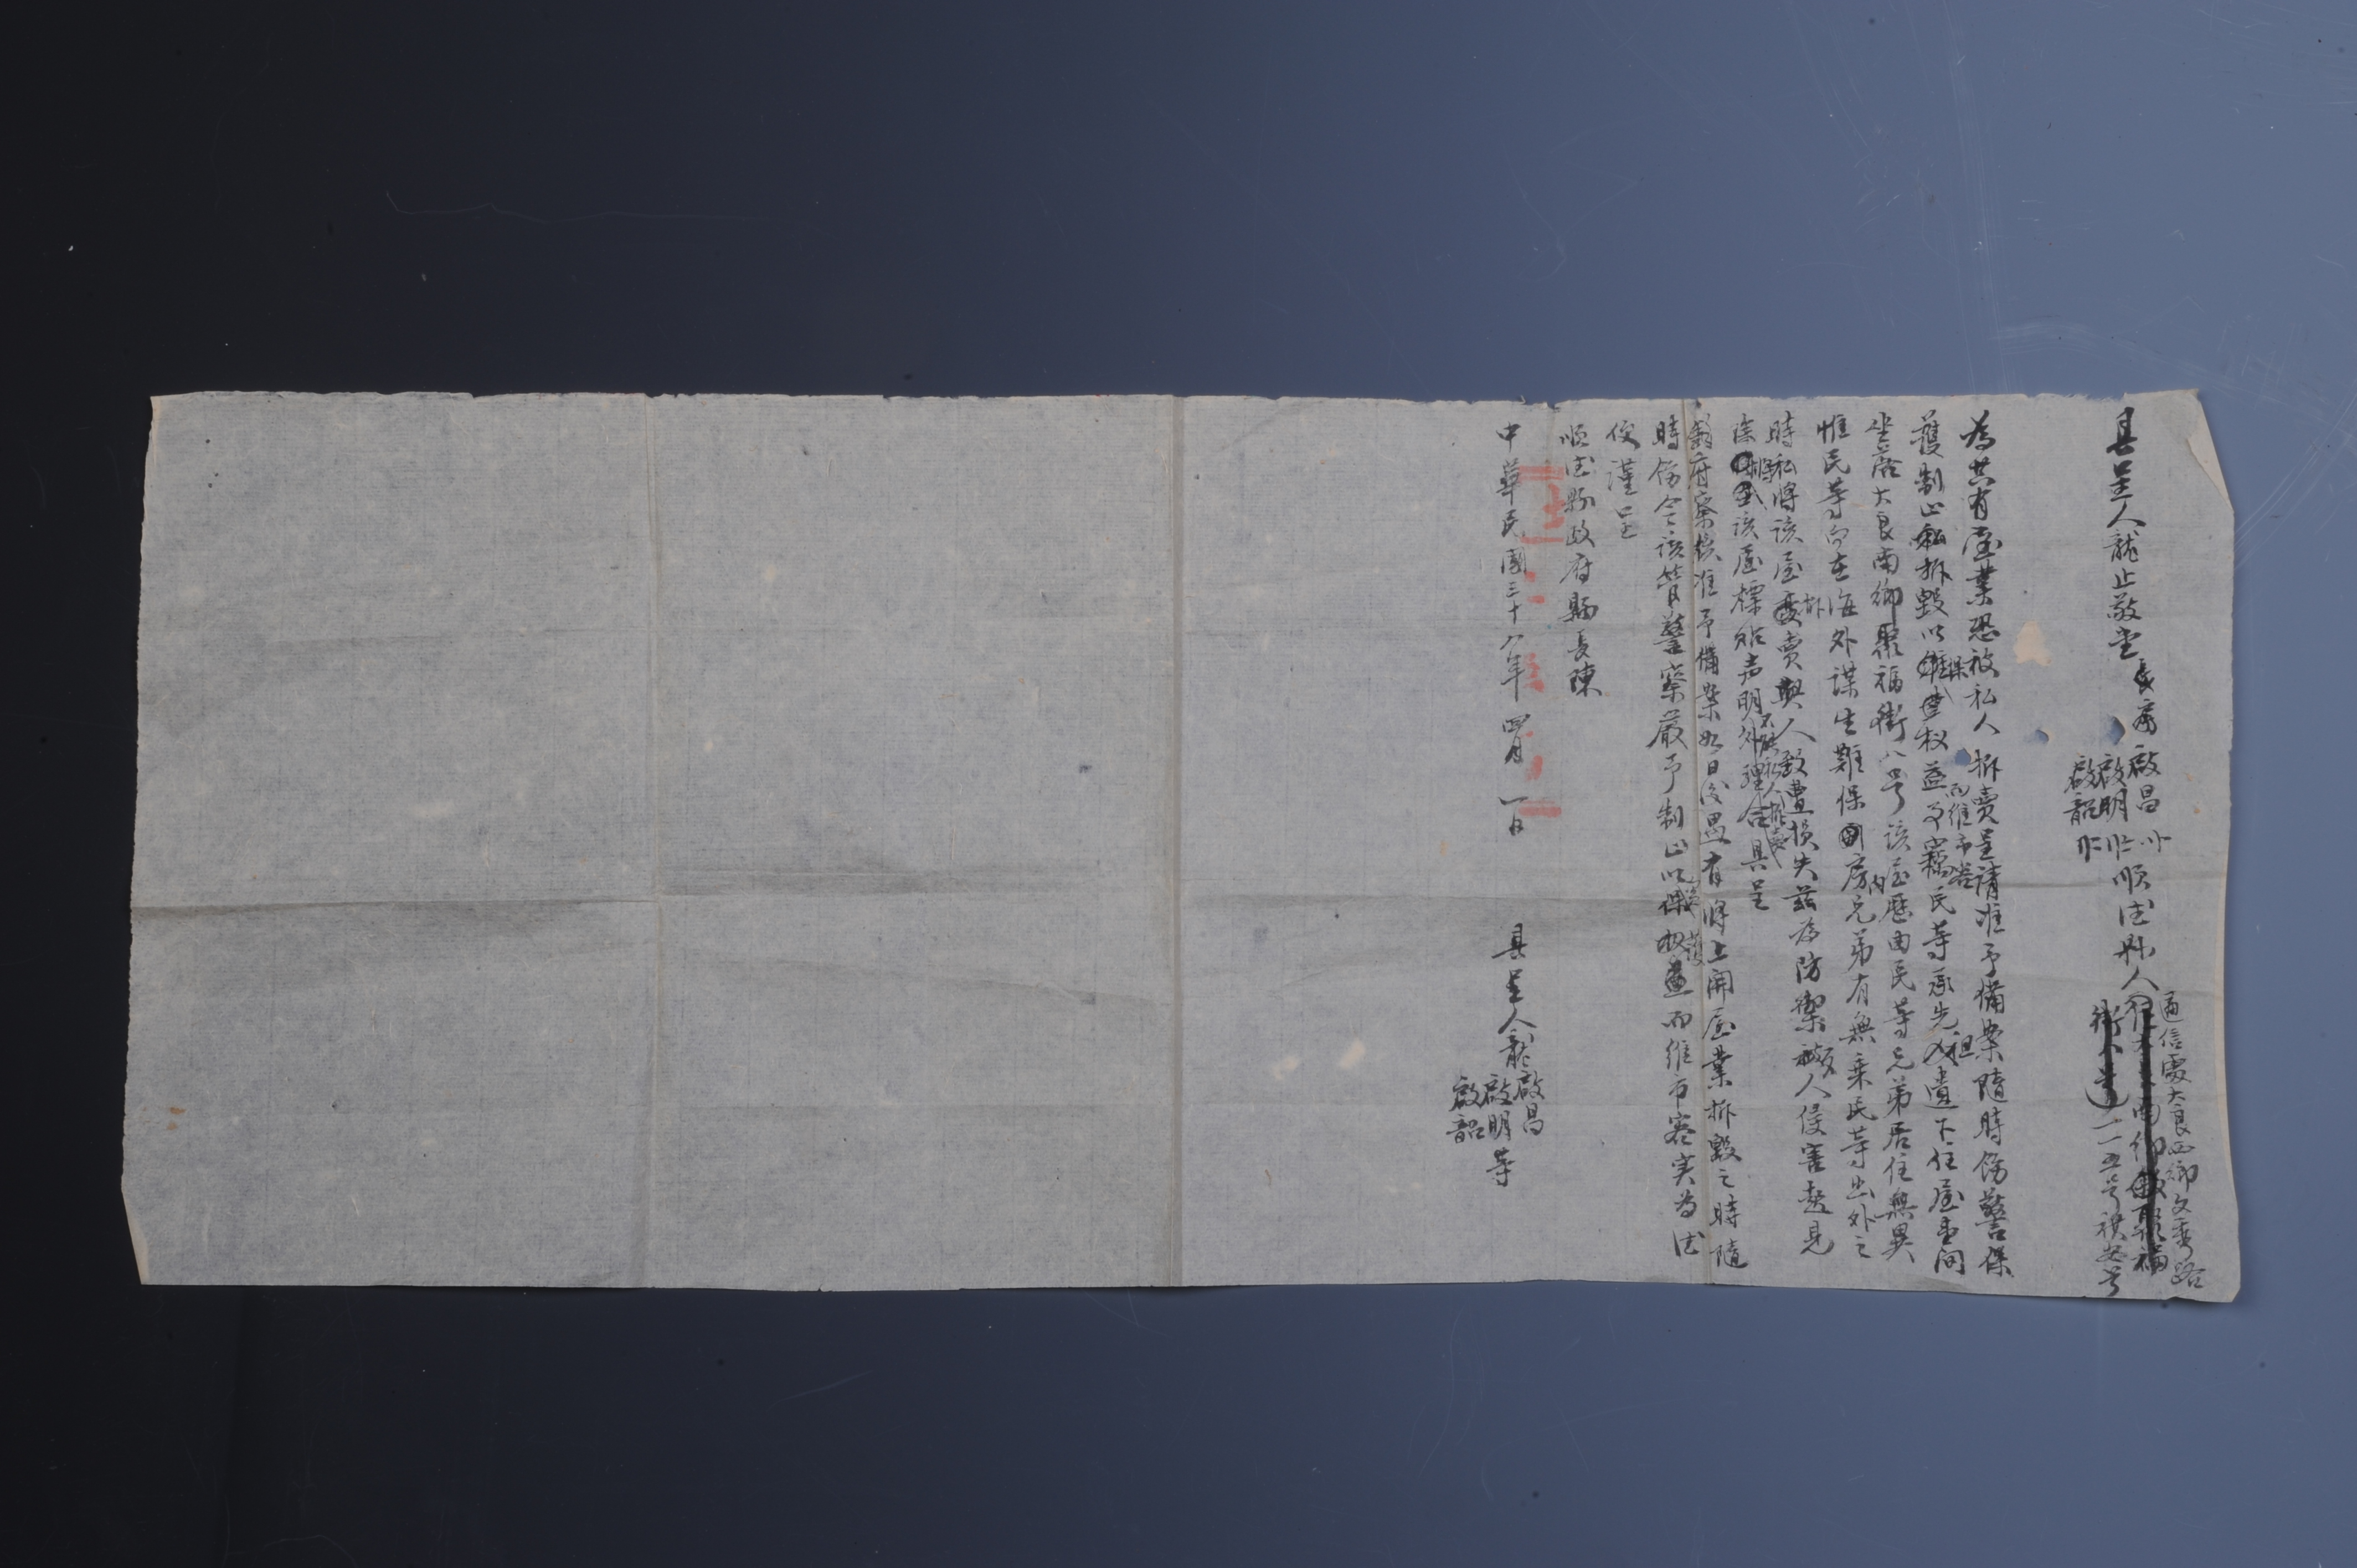 具呈人龍止敬堂長房啟昌 啟明 啟韶 順德縣人
通信處大良西鄉文秀路
一一五号
為共有屋業恐被私人拆賣呈請准予備案隨時飭警保
護制止私拆毀以維保权益而維市容事竊民等承先祖遺下住屋壹間
坐落大良南鄉聚福街八号該屋歷由民等兄弟居住無異
惟民等向在海外謀生難保內房兄弟有無乘民等出外之
時私將該屋拆賣與人致遭損失茲為防禦被人侵害起見
除將該屋標貼声明不能私人拆賣外理合具呈
鈞府察核准予備案如日後遇有將上開屋業拆毀之時隨
時飭令該管警察嚴予制止以保权益而維市容实為德
便謹呈
順德縣政府縣長陳
中華民國三十八年四月一日 具呈人龍啟昌 啟明 啟韶 等